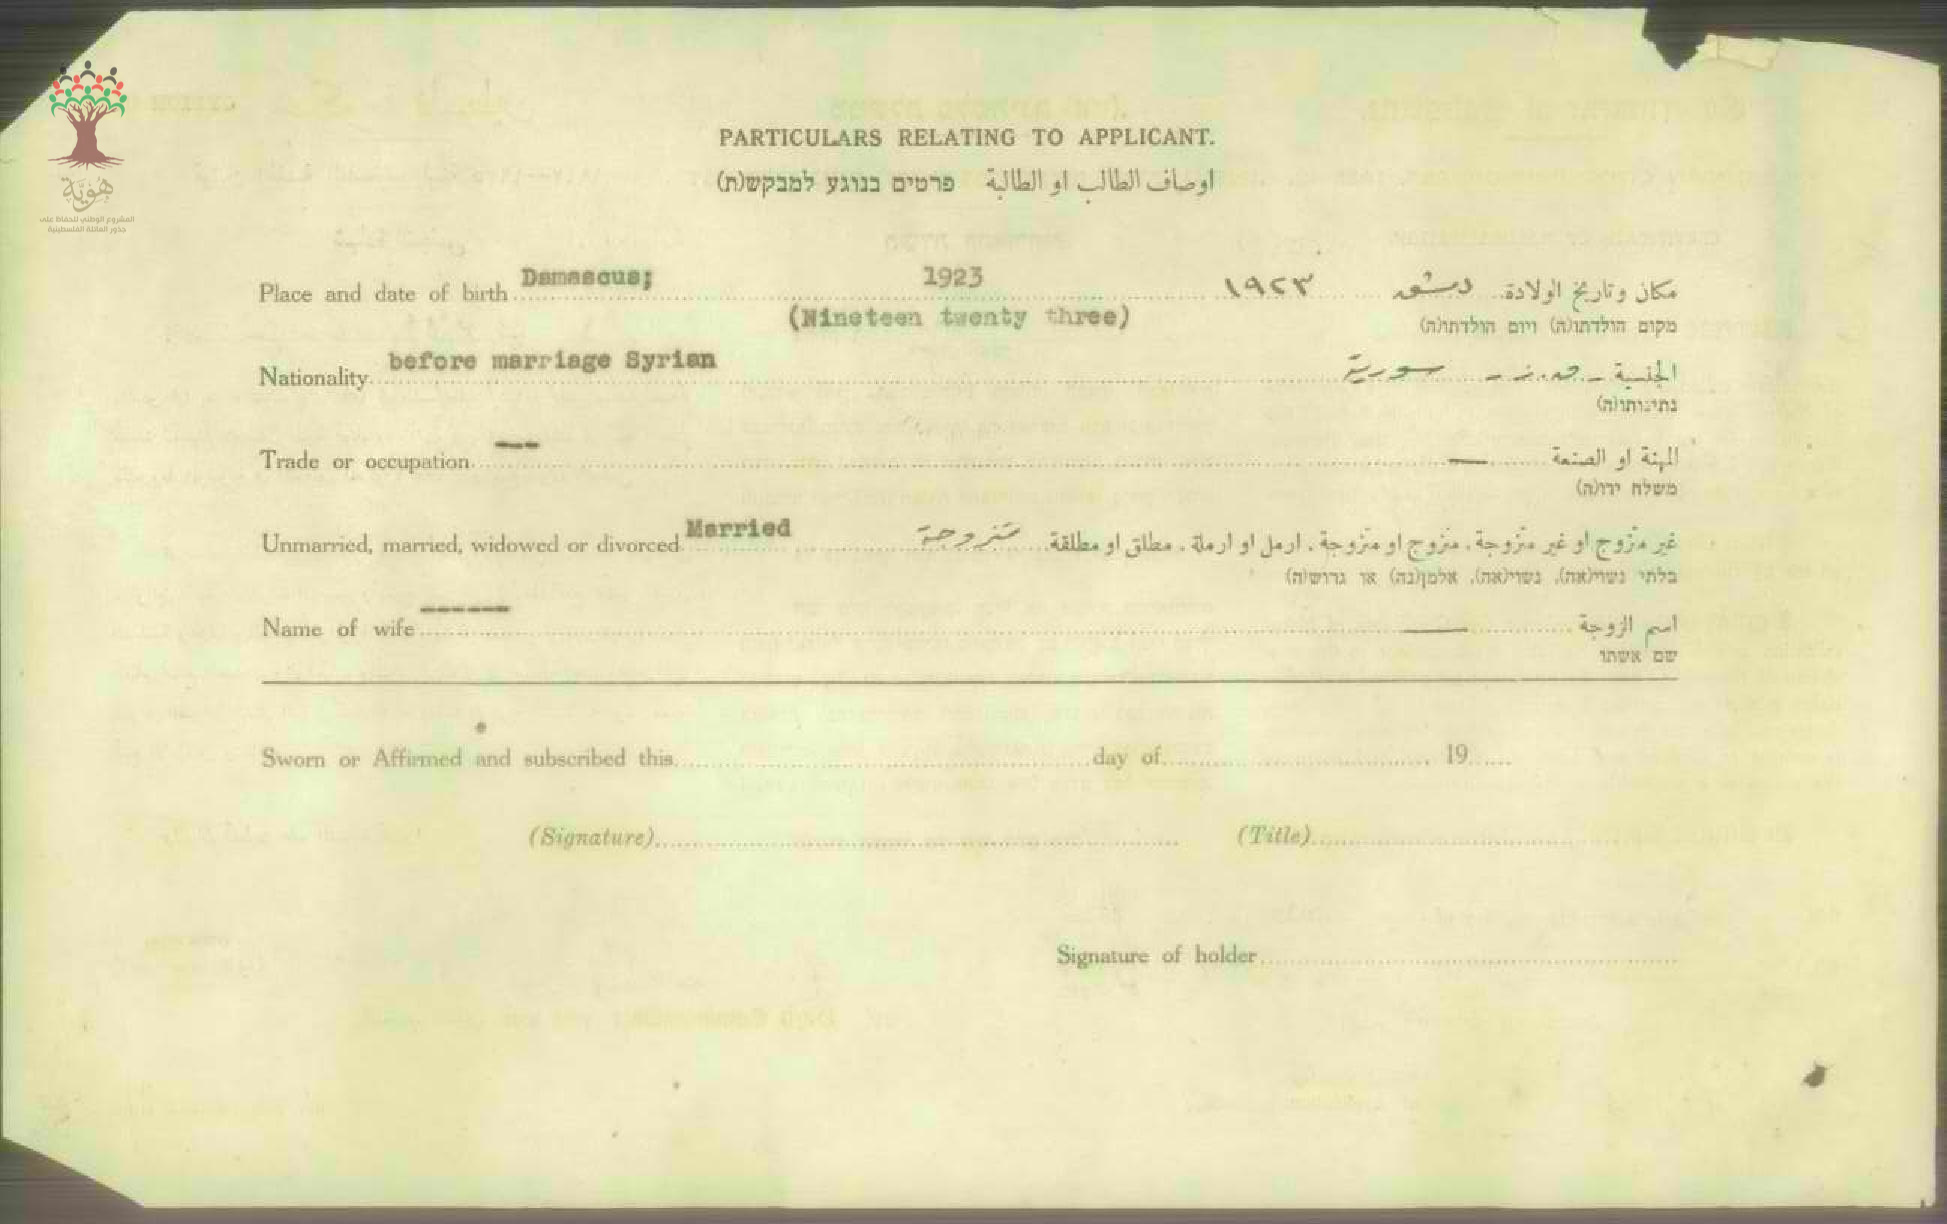 هُوِيَّة
المشروع الوطني للحفاظ على
جذور العائلة الفلسطينية
PARTICULARS RELATING TO APPLICANT.
اوصاف الطالب او الطالبة פרטים בנוגע למבקש(ת)
Place and date of birth Damascus; 1923 ١٩٢٣ دمشق مكان وتاريخ الولادة
(Nineteen twenty three) מקום הולדתו(ה) ויום הולדתו(ה)
Nationality before marriage Syrian سورية الجنسية
נתינותו(ה)
Trade or occupation --- — المهنة او الصنعة
משלח ידו(ה)
Unmarried, married, widowed or divorced Married متزوجة غير متزوج او غير متزوجة، متزوج او متزوجة، ارمل او ارملة، مطلق او مطلقة
בלתי נשוי(אה), נשוי(אה), אלמן(נה) או גרוש(ה)
Name of wife ------ — اسم الزوجة
שם אשתו
Sworn or Affirmed and subscribed this day of 19
(Signature) (Title)
Signature of holder